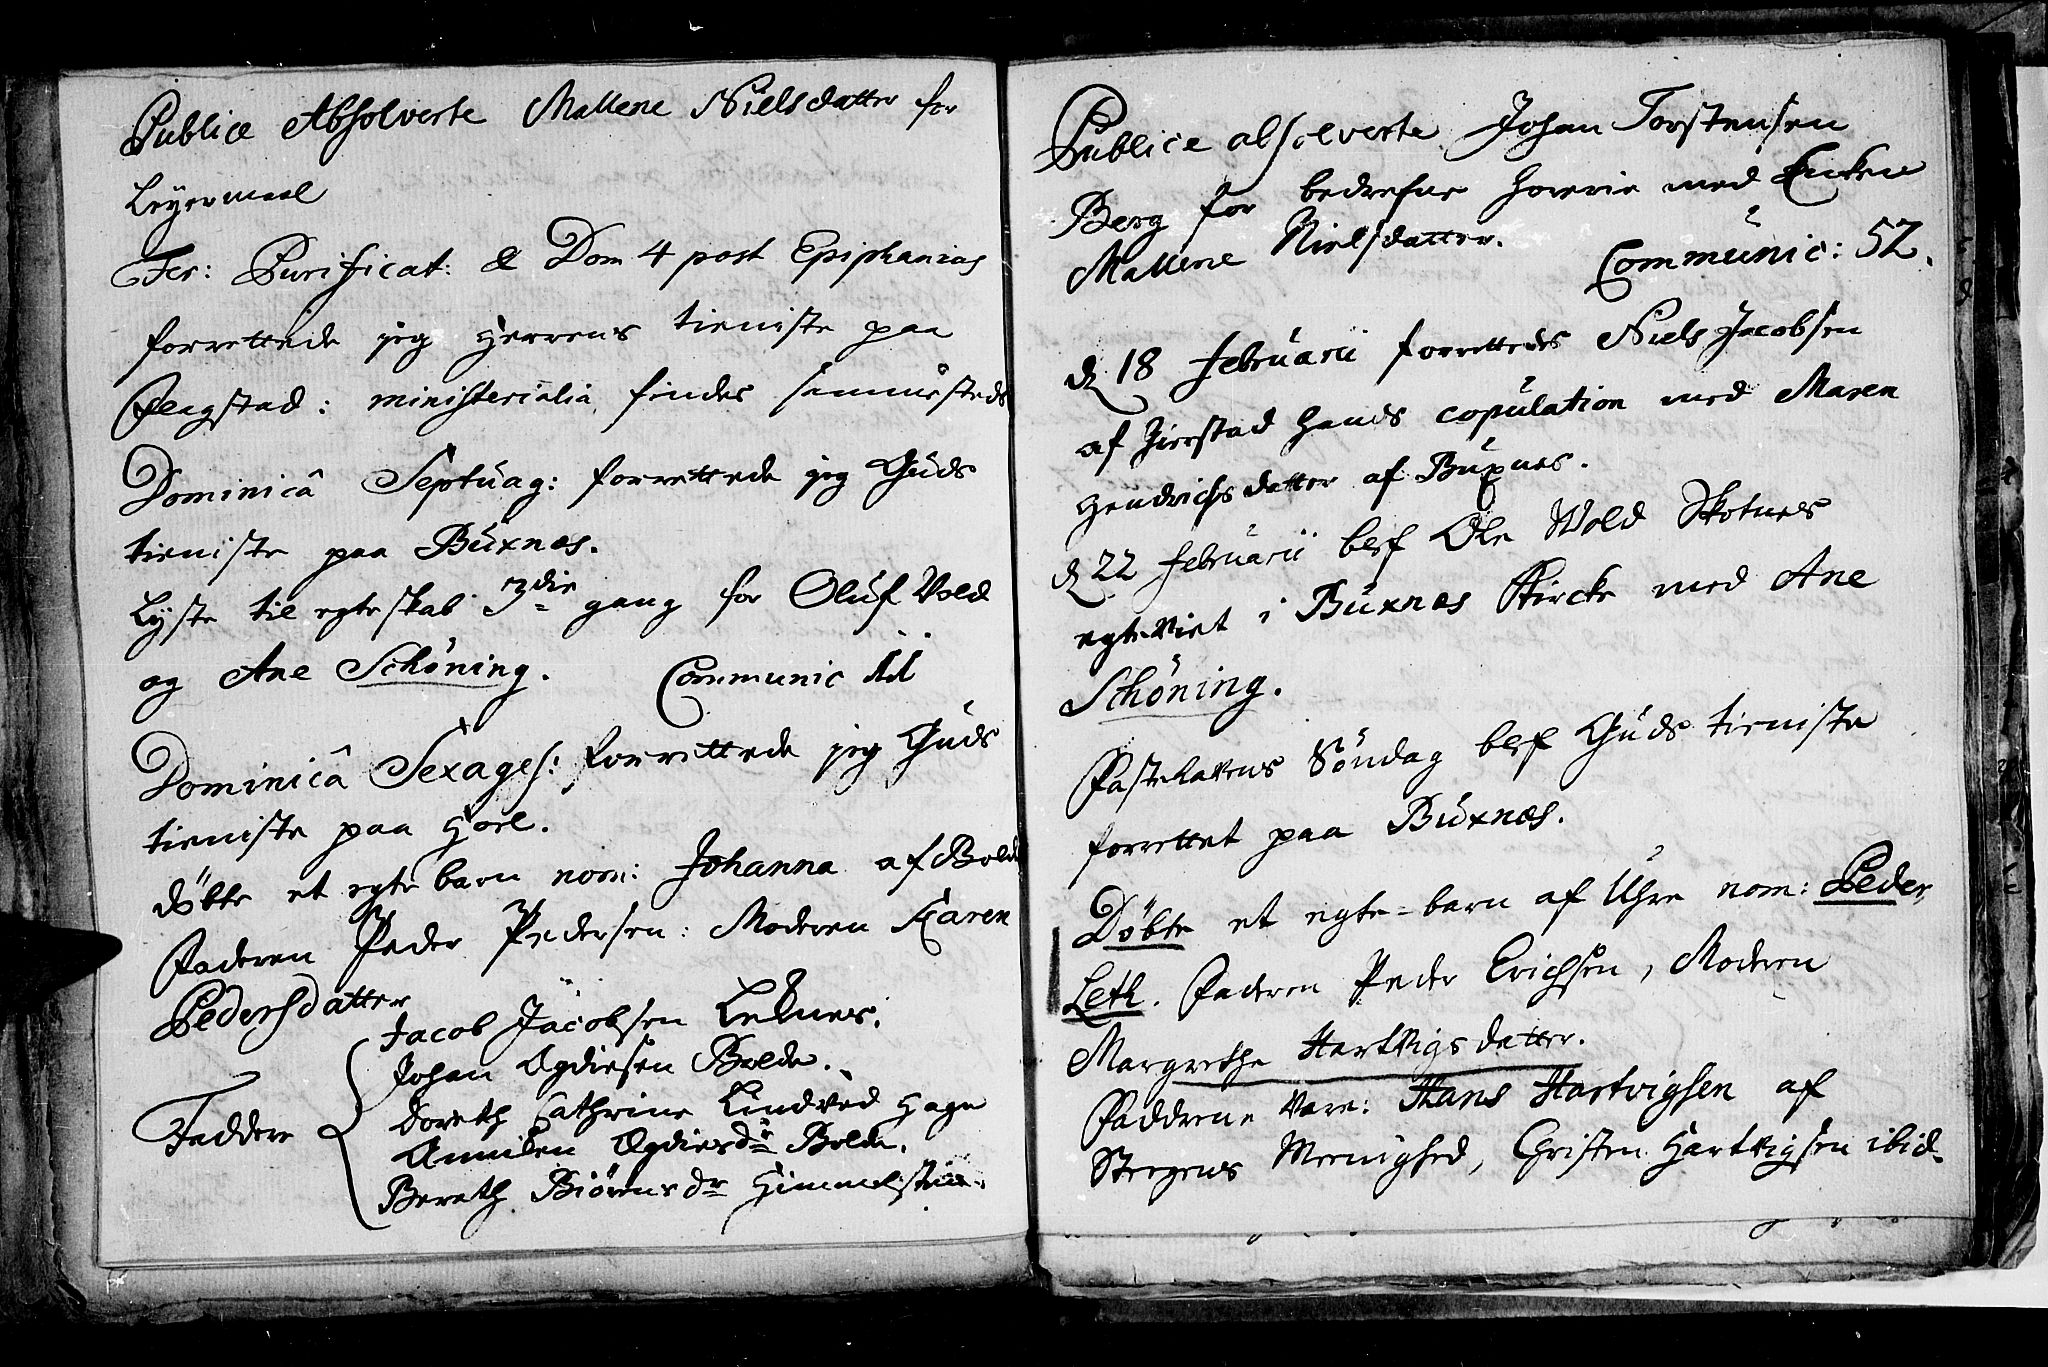 Publice Absolverte Mallene Nielsdatter for
Leyermaal
Fer: Purificat: & Dom 4 post Epiphanias
forrettede jeg Herrens tieniste paa
Flagstad: ministerialia findes sammesteds
Dominicâ Septuag: forrettede jeg Guds
tieniste paa Buxnæs.
Lyste til egteskab 3die gang for Oluf Vold
og Ane Schöning. Communic
Dominicâ Sexages: forrettede jeg Guds
tieniste paa Hoel.
döbte et egte barn nom: Johanna af Bolde
Faderen Peder Pedersen: Moderen Karen
Pedersdatter
Jacob Jacobsen Leknes.
Johan Ogdiesen Bolde.
Faddere Doreth Cathrine Lindved Hage
Annichen Ogdiesdr Bolde.
Bereth Biörnsdr Himmelstein.
Publice absolverte Johan Torstensen
Berg for bedrefne Horerie med Enken
Mallene Nielsdatter. Communic: 52.
d 18 Februarii forrettedes Niels Jacobsen
af Jerstad Hands copulation med Maren
Hendrichsdatter af Buxnes.
d 22 Februarii blef Ole Wold Skotnes
egteviet i Buxnæs Kircke med Ane
Schöning.
Fastelavens Söndag blef Guds tieniste
forrettet paa Buxnæs.
Döbte et egte-barn af Uhre nom: Peder
Leth. Faderen Peder Erichsen, Moderen
Margrethe Hartvigsdatter.
Fadderne vare: Hans Hartvigsen af
Steegens Meenighed, Christen Hartvigsen ibid.